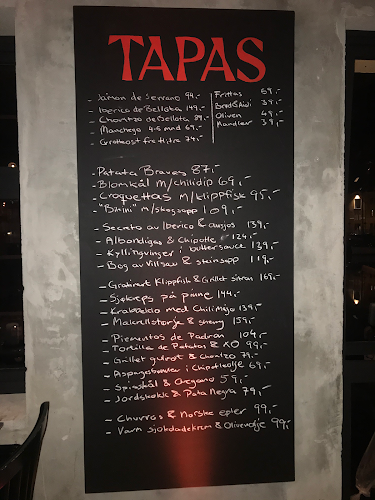 TAPAS
- Jamon de Serrano 94,-
- Iberico de Bellota 149,-
- Chorizo de Bellota 89,-
- Manchego 4-6 mnd 69,-
- Grotteost fre Hitra 74,-
Frittas 69,-
Brød & Aioli 39,-
Oliven 49,-
Mandler 39,-
- Patata Bravas 87,-
- Blomkål m/chilidip 69,-
- Croquettas m/klippfisk 95,-
- "Bikini" m/skogsopp 109,-
- Secreto av Iberico & ansjos 139,-
- Albondigas & Chipotle 124,-
- Kyllingvinger i buttersauct 139,-
- Bog av villsau & steinsopp 119,-
- Gratinert Klippfisk & Grillet sitron 169,-
- Sjøkreps på pinne 144,-
- Krabbeklo med Chilimajo 139,-
- Makrelltartar & 159,-
- Piementos de Padron 104,-
- Tortilla de Patatas & XO 99,-
- Grillet gulrot & Chorizo 79,-
- Aspargesbønner i Chipotleolje 69,-
- Spisskål & Oregano 59,-
- Jordskokk & Pata Negra 79,-
- Churros & Norske epler 99,-
- Varm sjokoladekrem & Olivenolje 99,-